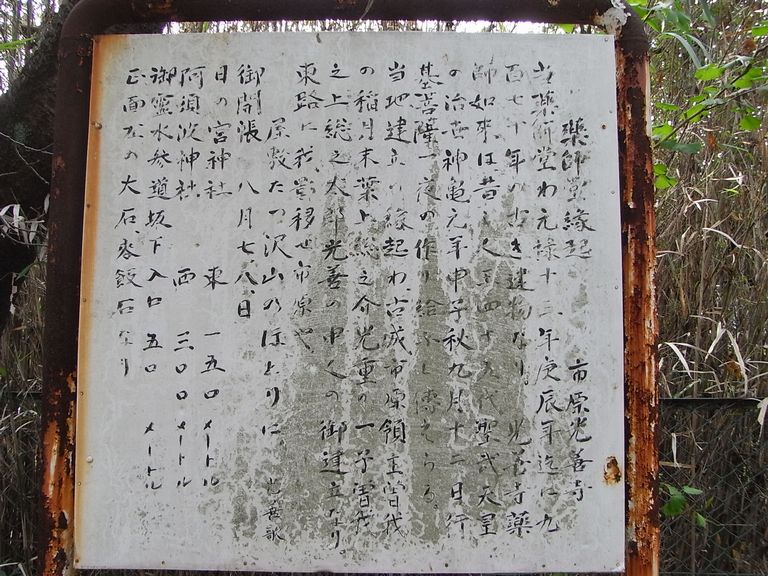 薬師堂縁起 市原光善寺
当薬師堂わ元禄十三年庚辰年迄に九
百七十年の古き建物なり 光善寺薬
師如来は昔し人皇四十五代聖武天皇
の治世神亀元年甲子秋九月十二日行
基菩薩一夜の作り給ふと傳えらる
当地建立の縁起わ古城市原領主曽代
の稲月末葉上総之介光重の一子曽代
之上総之太郎光善の中人の御建立なり。
東路に我劉移せ市原や
屋敷たつ沢山のほとりに 光善歌
御開帳 八月七八日
日の宮神社 東 一五〇メートル
阿須波神社 西 三〇〇メートル
御霊水参道坂下入口 五〇メートル
正面左の大石 飯石なり